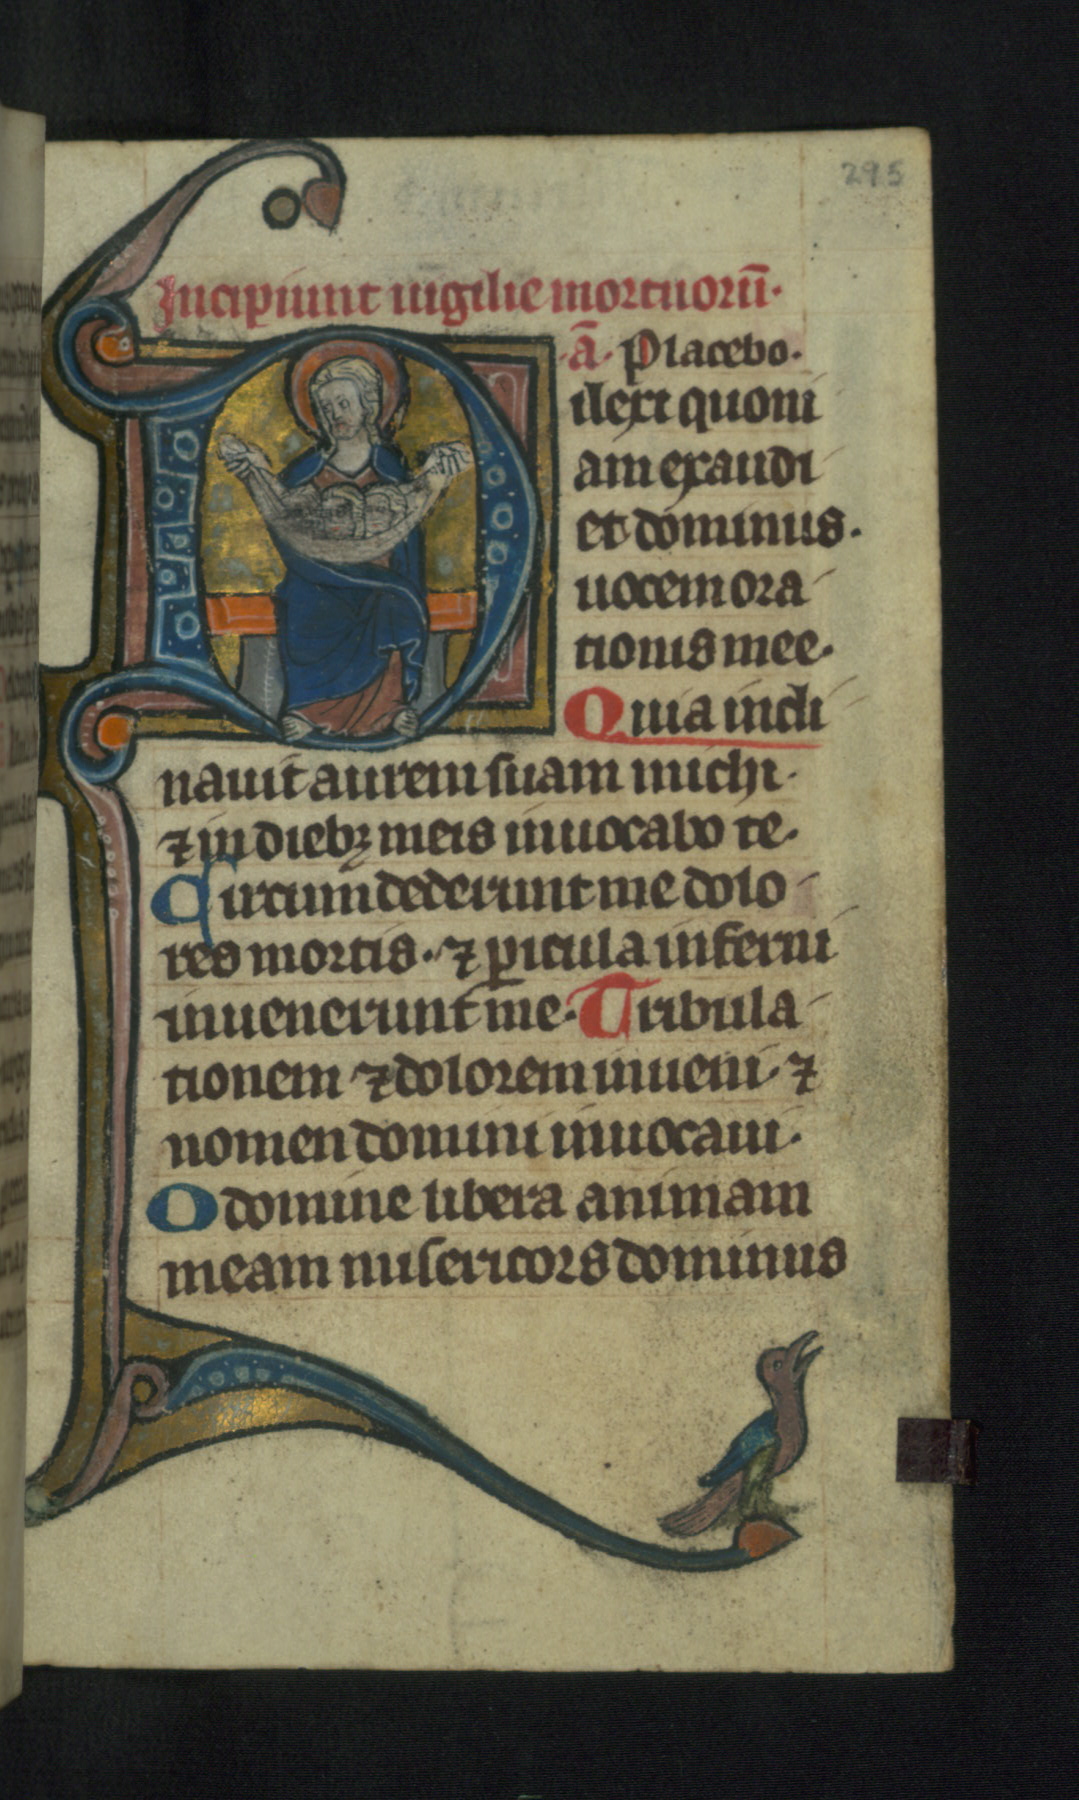 295
Incipiunt uigilie mortuorū.
ā. Placebo.
Dilexi quoni
am exaudi
et dominus.
uocem ora
tionis mee.
Quia incli
nauit aurem suam michi.
⁊ in diebꝫ meis inuocabo te.
Circumdederunt me dolo
res mortis. ⁊ ꝑicula inferni
inuenerunt me. Tribula
tionem ⁊ dolorem inueni. ⁊
nomen domini inuocaui.
O domine libera animam
meam misericors dominus